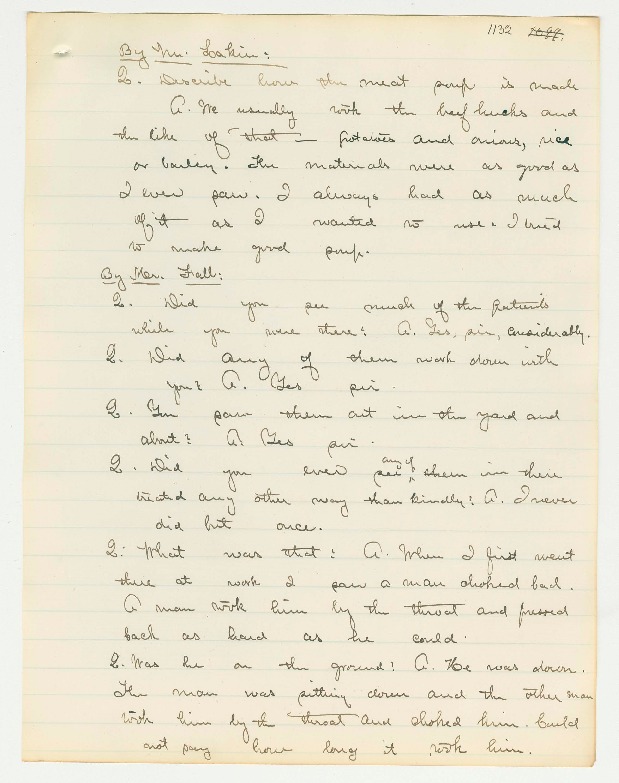 1132
By Mr. Lakin:
Q. Describe how the meat soup is made
A. We usually took the beef hucks and
the like of that — potatoes and onions, rice
or barley. The materials were as good as
I ever saw. I always had as much
of it as I wanted to use. I tried
to make good soup.
By Mr. Fall:
Q. Did you see much of the patients
while you were there? A. Yes, sir, considerably.
Q. Did any of them work down with
you? A. Yes sir.
Q. You saw them out in the yard and
about? A. Yes sir.
Q. Did you ever see any of them in there
treated any other way than kindly? A. I never
did but once.
Q. What was that? A. When I first went
there at work I saw a man choked bad.
A man took him by the throat and pressed
back as hard as he could.
Q. Was he on the ground? A. He was down.
The man was sitting down and the other man
took him by the throat and choked him. Could
not say how long it took him.